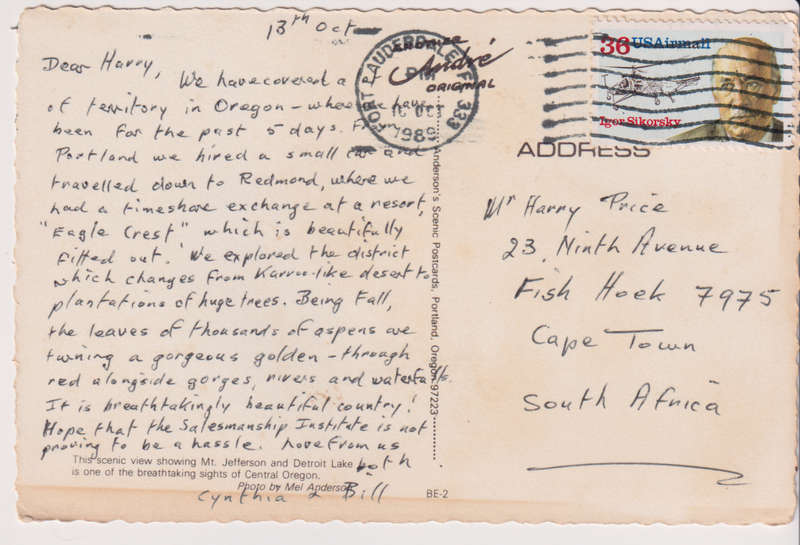 13th Oct
Dear Harry,
We have covered a
of territory in Oregon - where we have
been for the past 5 days. 
Portland we hired a small car and
travelled down to Redmond, where we
had a timeshare exchange at a resort,
"Eagle Crest" which is beautifully
fitted out. We explored the district
which changes from Karroo-like desert to
plantations of huge trees. Being Fall,
the leaves of thousands of aspens are
turning a gorgeous golden - through
red alongside gorges, rivers and waterfalls.
It is breathtakingly beautiful country!
Hope that the Salesmanship Institute is not
proving to be a hassle. Love from us
both
Cynthia & Bill
This scenic view showing Mt. Jefferson and Detroit Lake
is one of the breathtaking sights of Central Oregon.
Photo by Mel Anderson
BE-2
Anderson's Scenic Postcards, Portland, Oregon 97223
FORT LAUDERDALE, FL 333
PM
16 OCT
1989
André
ORIGINAL
36 USAirmail
Igor Sikorsky
ADDRESS
Mr Harry Price
23, Ninth Avenue
Fish Hoek 7975
Cape Town
South Africa